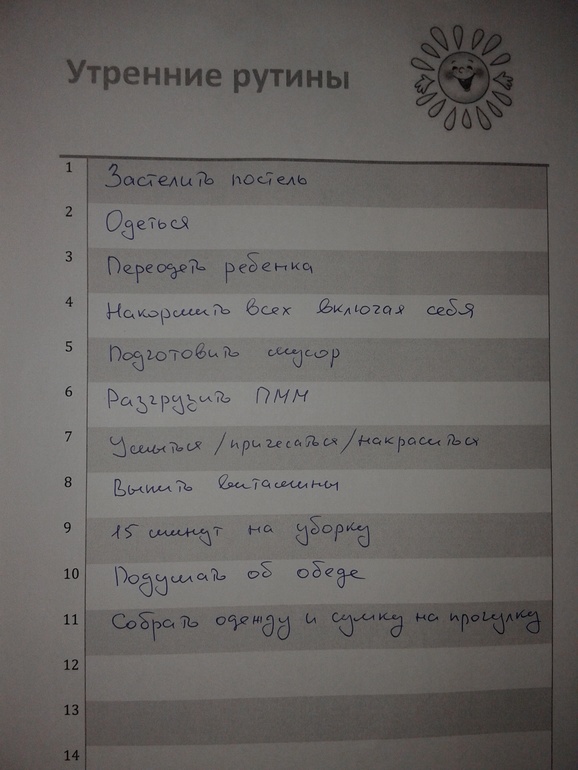 Утренние рутины
1 Застелить постель
2 Одеться
3 Переодеть ребенка
4 Накормить всех включая себя
5 Подготовить мусор
6 Разгрузить ПММ
7 Умыться/причесаться/накраситься
8 Выпить витамины
9 15 минут на уборку
10 Подумать об обеде
11 Собрать одежду и сумку на прогулку
12
13
14